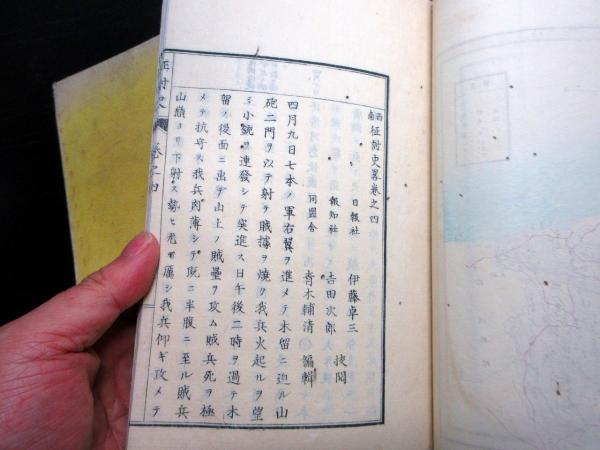 西南征討史畧卷之四
日報社 伊藤卓三
報知社 吉田次郎 挍閲
同盟舎 青木輔清 編輯
四月九日七本ノ軍右翼ヲ進メテ木留ニ迫ル山
砲二門ヲ以テ射テ賊據ヲ燒ク我兵火起ルヲ望
ミ小銃ヲ連發シテ突進ス日午後二時ヲ過テ木
留ノ後面ニ出テ山上ノ賊壘ヲ攻ム賊兵死ヲ極
メテ抗守ス我兵肉薄シテ既ニ半腹ニ至ル賊兵
山巓ヨリ下射ス勢ヒ尤モ厲シ我兵仰ギ攻メテ
征討史畧 卷之四